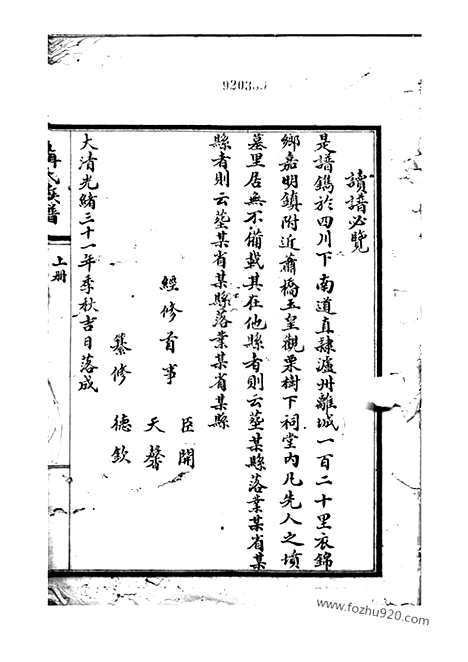 讀譜必覽
是譜鐫於四川下南道直隸瀘州離城一百二十里衣錦
鄉嘉明鎮附近蕭橋玉皇觀栗樹下祠堂內凡先人之墳
墓里居無不備載其在他縣者則云塟某縣落業某省某
縣者則云塟某省某縣落業某省某縣
經修首事
臣開
天馨
纂修
德欽
大清光緒三十一年季秋吉日落成
氏族譜
上册
www.fozhu920.com